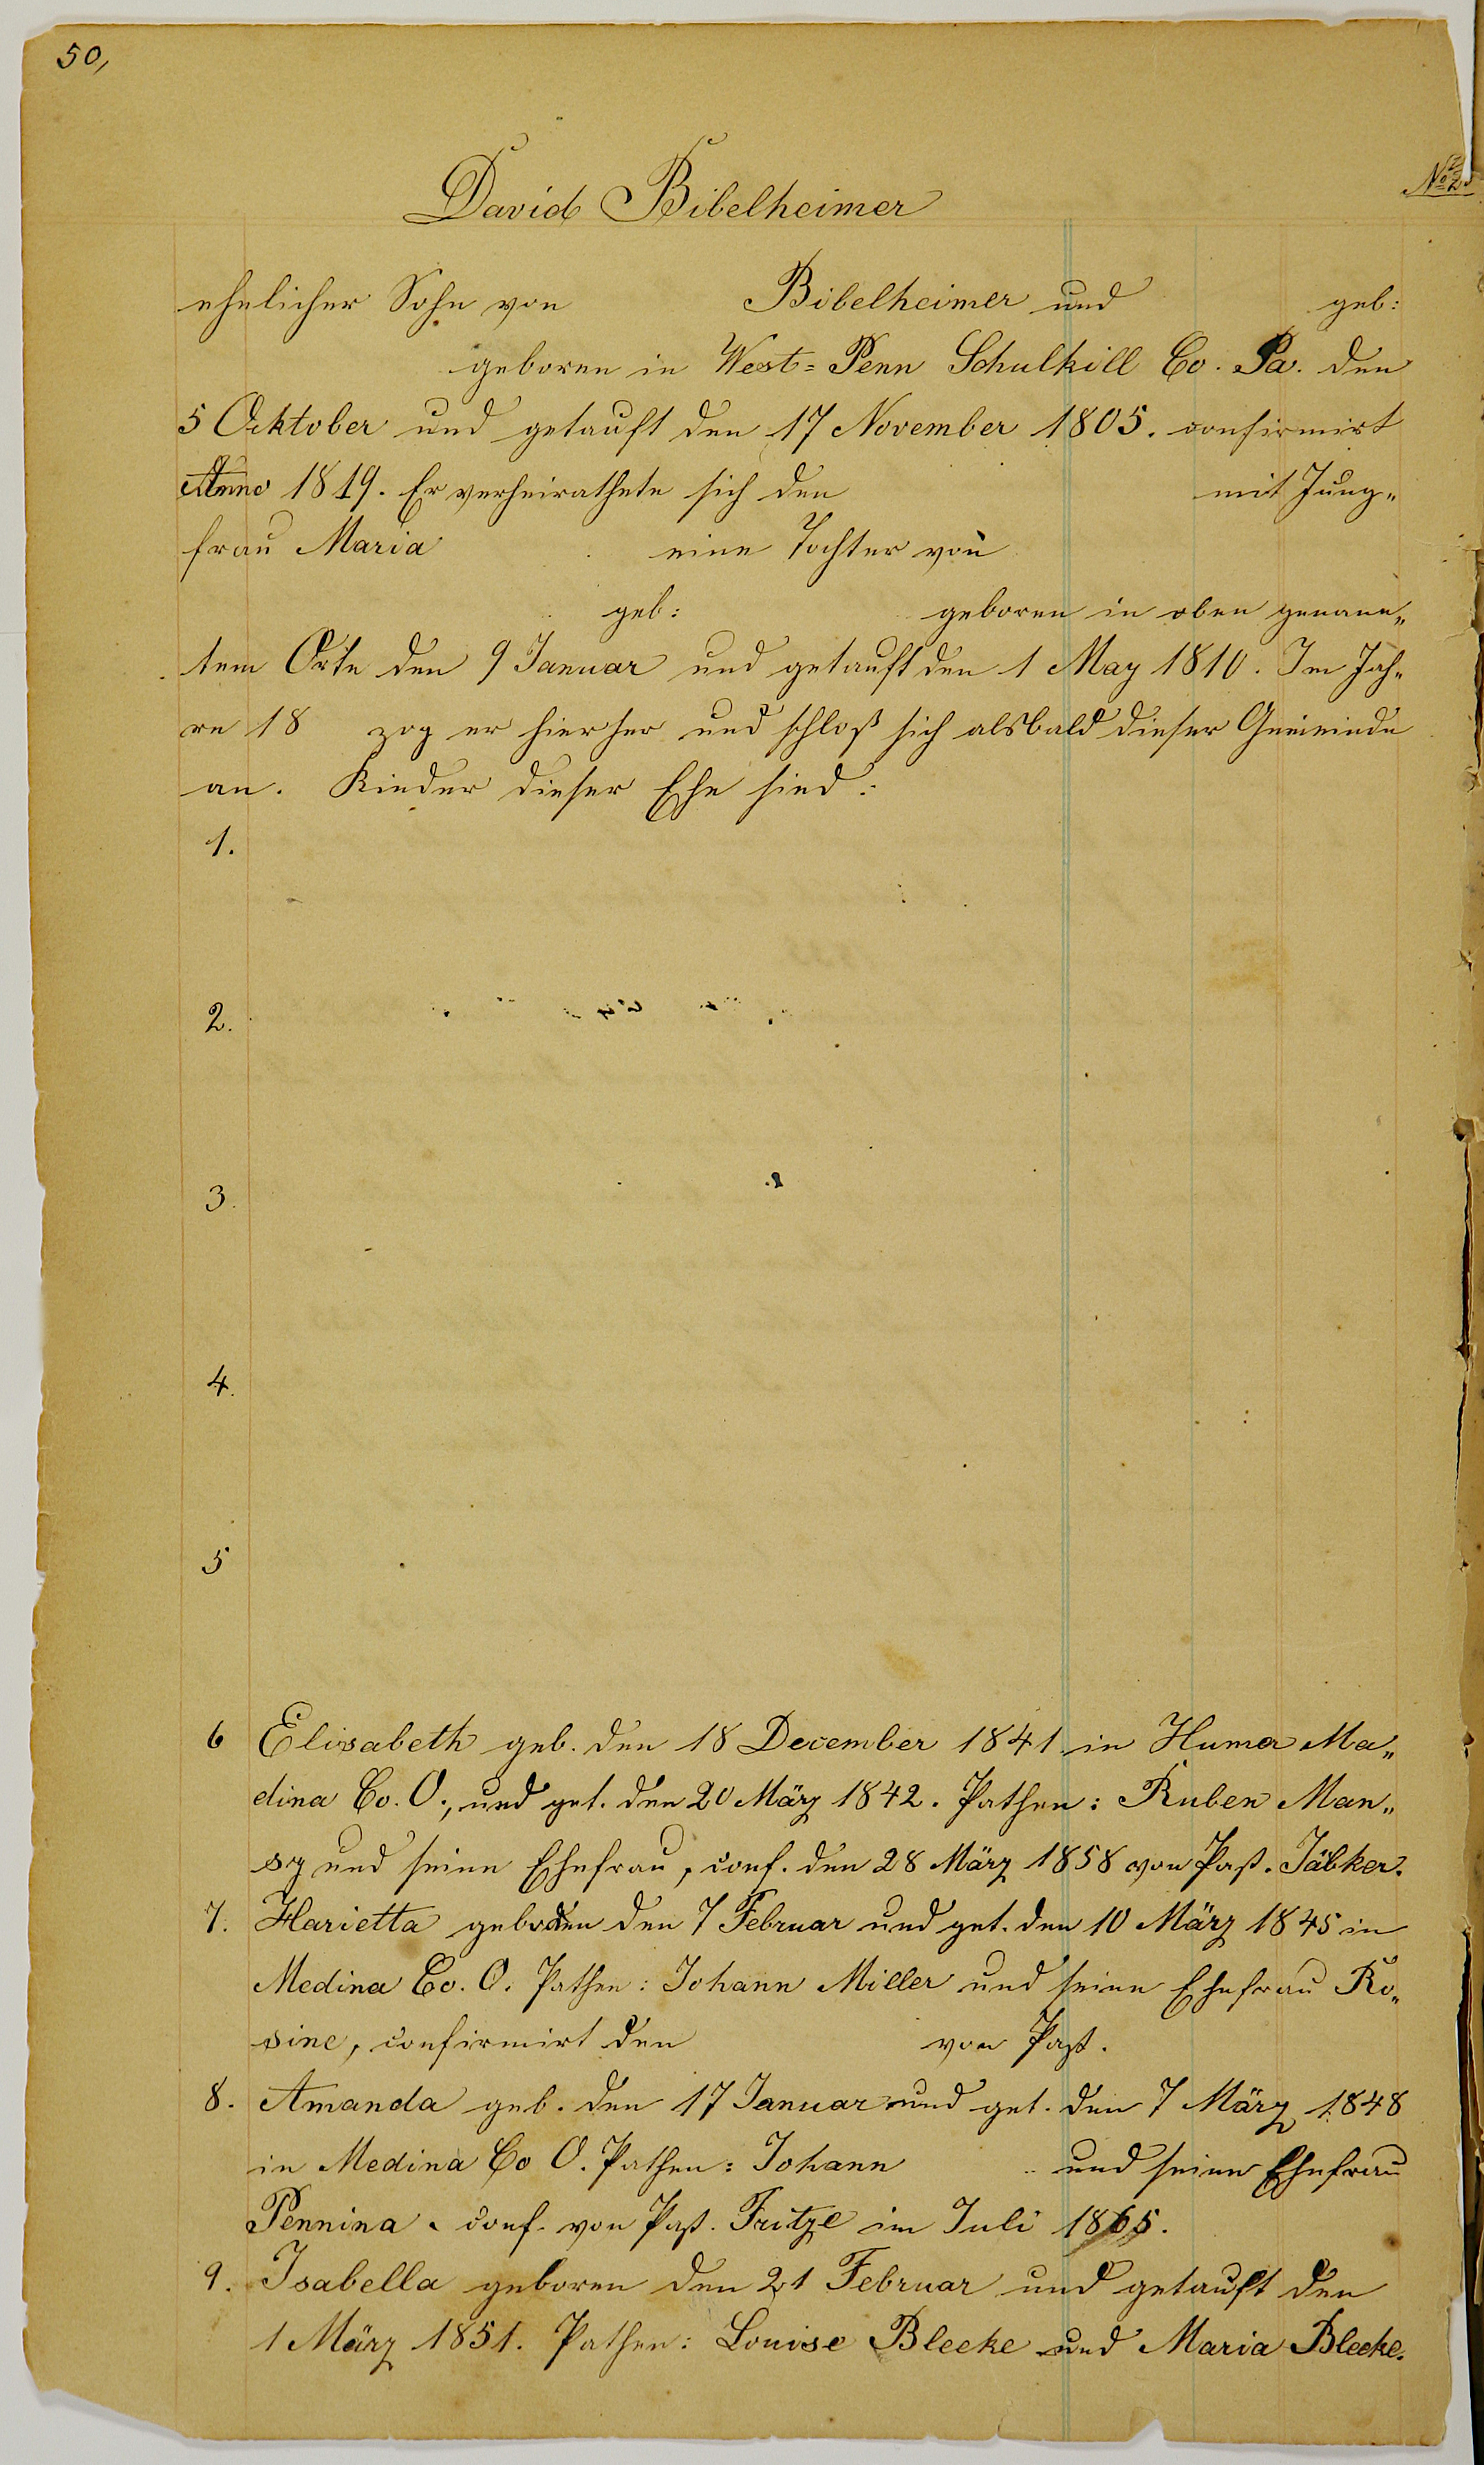 50,
David Bibelheimer
ehelicher Sohn von Bibelheimer und geb:
geboren in West= Penn Schulkill Co. Pa. den
5 Oktober und getauft den 17 November 1805. confirmirt
Anno 1819. Er verheirathete sich den mit Jung„
frau Maria eine Tochter von
geb: geboren in oben genann„
tem Orte den 9 Januar und getauft den 1 May 1810. Im Jah„
re 18 zog er hierher und schloß sich alsbald dieser Gemeinde
an. Kinder dieser Ehe sind:
1.
2.
3.
4.
5
6 Elisabeth geb. den 18 December 1841 in Huma Ma„
dina Co. O., und get. den 20 März 1842. Pathen: Ruben Man„
sy und seine Ehefrau, conf. den 28 März 1858 von Past. Jäbker.
7. Harietta geboren den 7 Februar und get. den 10 März 1845 in
Medina Co. O. Pathen: Johann Miller und seine Ehefrau Ro„
sine, confirmirt den von Past.
8. Amanda geb. den 17 Januar und get. den 7 März 1848
in Medina Co O. Pathen: Johann und seine Ehefrau
Pennina. conf. von Past. Fritze im Juli 1865.
9. Isabella geboren den 21 Februar und getauft den
1 März 1851. Pathen: Louise Bleeke und Maria Bleeke.